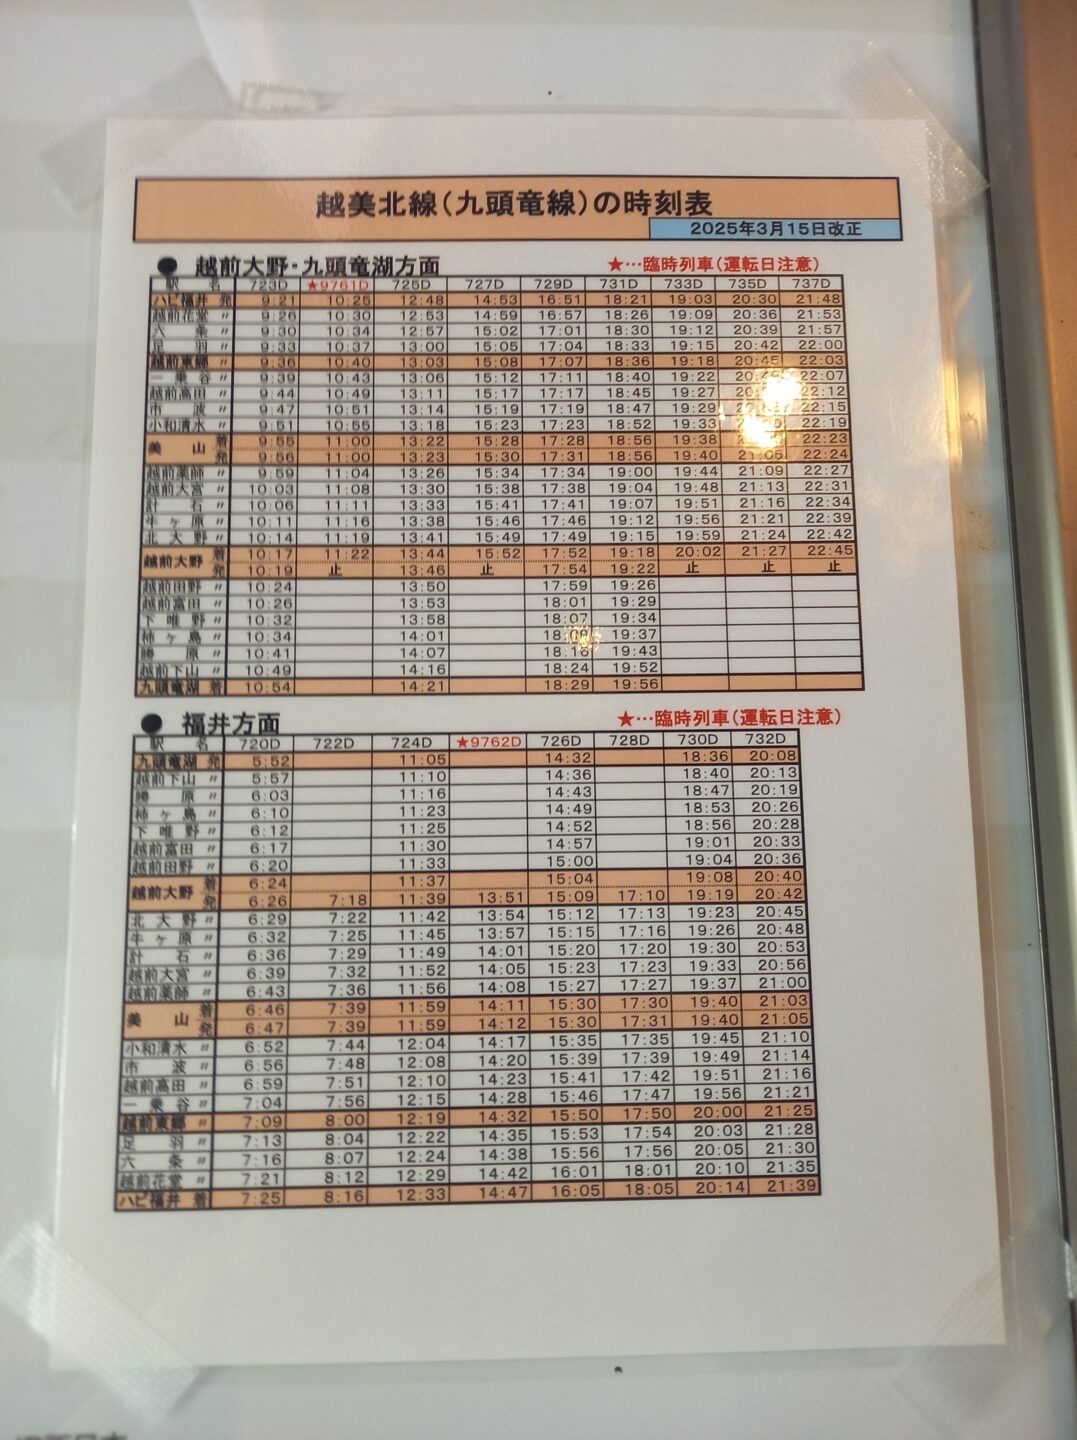 越美北線(九頭竜線)の時刻表
2025年3月15日改正
● 越前大野・九頭竜湖方面
★…臨時列車(運転日注意)
駅 名 723D ★9761D 725D 727D 729D 731D 733D 735D 737D
ハピ福井 発 9:21 10:25 12:48 14:53 16:51 18:21 19:03 20:30 21:48
越前花堂 〃 9:26 10:30 12:53 14:59 16:57 18:26 19:09 20:36 21:53
六 条 〃 9:30 10:34 12:57 15:02 17:01 18:30 19:12 20:39 21:57
足 羽 〃 9:33 10:37 13:00 15:05 17:04 18:33 19:15 20:42 22:00
越前東郷 〃 9:36 10:40 13:03 15:08 17:07 18:36 19:18 20:45 22:03
一乗谷 〃 9:39 10:43 13:06 15:12 17:11 18:40 19:22 22:07
越前高田 〃 9:44 10:49 13:11 15:17 17:17 18:45 19:27 22:12
市 波 〃 9:47 10:51 13:14 15:19 17:19 18:47 19:29 22:15
小和清水 〃 9:51 10:55 13:18 15:23 17:23 18:52 19:33 22:19
美 山 着 9:55 11:00 13:22 15:28 17:28 18:56 19:38 22:23
発 9:56 11:00 13:23 15:30 17:31 18:56 19:40 21:05 22:24
越前薬師 〃 9:59 11:04 13:26 15:34 17:34 19:00 19:44 21:09 22:27
越前大宮 〃 10:03 11:08 13:30 15:38 17:38 19:04 19:48 21:13 22:31
計 石 〃 10:06 11:11 13:33 15:41 17:41 19:07 19:51 21:16 22:34
牛ヶ原 〃 10:11 11:16 13:38 15:46 17:46 19:12 19:56 21:21 22:39
北大野 〃 10:14 11:19 13:41 15:49 17:49 19:15 19:59 21:24 22:42
越前大野 着 10:17 11:22 13:44 15:52 17:52 19:18 20:02 21:27 22:45
発 10:19 止 13:46 止 17:54 19:22 止 止 止
越前田野 〃 10:24 13:50 17:59 19:26
越前富田 〃 10:26 13:53 18:01 19:29
下唯野 〃 10:32 13:58 18:07 19:34
柿ヶ島 〃 10:34 14:01 18:09 19:37
勝 原 〃 10:41 14:07 18:16 19:43
越前下山 〃 10:49 14:16 18:24 19:52
九頭竜湖 着 10:54 14:21 18:29 19:56
● 福井方面
★…臨時列車(運転日注意)
駅 名 720D 722D 724D ★9762D 726D 728D 730D 732D
九頭竜湖 発 5:52 11:05 14:32 18:36 20:08
越前下山 〃 5:57 11:10 14:36 18:40 20:13
勝 原 〃 6:03 11:16 14:43 18:47 20:19
柿ヶ島 〃 6:10 11:23 14:49 18:53 20:26
下唯野 〃 6:12 11:25 14:52 18:56 20:28
越前富田 〃 6:17 11:30 14:57 19:01 20:33
越前田野 〃 6:20 11:33 15:00 19:04 20:36
越前大野 着 6:24 11:37 15:04 19:08 20:40
発 6:26 7:18 11:39 13:51 15:09 17:10 19:19 20:42
北大野 〃 6:29 7:22 11:42 13:54 15:12 17:13 19:23 20:45
牛ヶ原 〃 6:32 7:25 11:45 13:57 15:15 17:16 19:26 20:48
計 石 〃 6:36 7:29 11:49 14:01 15:20 17:20 19:30 20:53
越前大宮 〃 6:39 7:32 11:52 14:05 15:23 17:23 19:33 20:56
越前薬師 〃 6:43 7:36 11:56 14:08 15:27 17:27 19:37 21:00
美 山 着 6:46 7:39 11:59 14:11 15:30 17:30 19:40 21:03
発 6:47 7:39 11:59 14:12 15:30 17:31 19:40 21:05
小和清水 〃 6:52 7:44 12:04 14:17 15:35 17:35 19:45 21:10
市 波 〃 6:56 7:48 12:08 14:20 15:39 17:39 19:49 21:14
越前高田 〃 6:59 7:51 12:10 14:23 15:41 17:42 19:51 21:16
一乗谷 〃 7:04 7:56 12:15 14:28 15:46 17:47 19:56 21:21
越前東郷 〃 7:09 8:00 12:19 14:32 15:50 17:50 20:00 21:25
足 羽 〃 7:13 8:04 12:22 14:35 15:53 17:54 20:03 21:28
六 条 〃 7:16 8:07 12:24 14:38 15:56 17:56 20:05 21:30
越前花堂 〃 7:21 8:12 12:29 14:42 16:01 18:01 20:10 21:35
ハピ福井 着 7:25 8:16 12:33 14:47 16:05 18:05 20:14 21:39